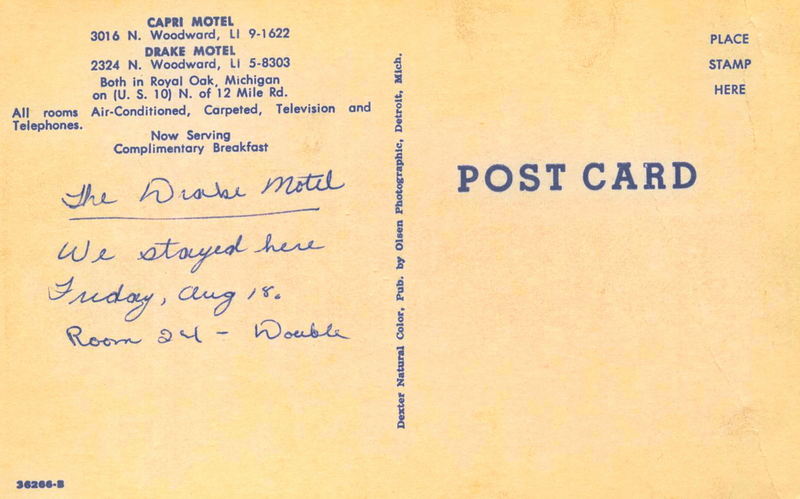 CAPRI MOTEL
3016 N. Woodward, LI 9-1622
DRAKE MOTEL
2324 N. Woodward, LI 5-8303
Both in Royal Oak, Michigan
on (U. S. 10) N. of 12 Mile Rd.
All rooms Air-Conditioned, Carpeted, Television and
Telephones.
Now Serving
Complimentary Breakfast
The Drake Motel
We stayed here
Friday, Aug 18.
Room 24 - Double
36266-B
Dexter Natural Color, Pub. by Olsen Photographic, Detroit, Mich.
PLACE
STAMP
HERE
POST CARD